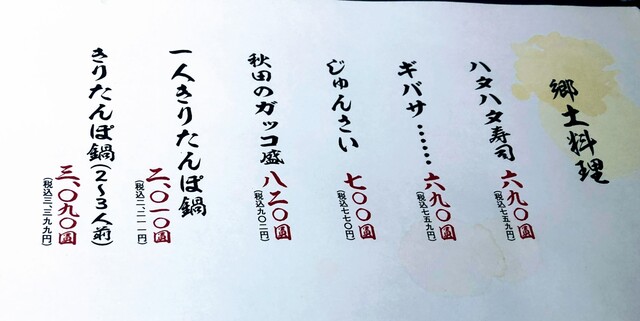 郷土料理
ハタハタ寿司 六九〇圓
(税込七五九円)
ギバサ…… 六九〇圓
(税込七五九円)
じゅんさい 七〇〇圓
(税込七七〇円)
秋田のガッコ盛 八二〇圓
(税込九〇二円)
一人きりたんぽ鍋 二、〇一〇圓
(税込二、二一一円)
きりたんぽ鍋(2〜3人前) 三、〇九〇圓
(税込三、三九九円)